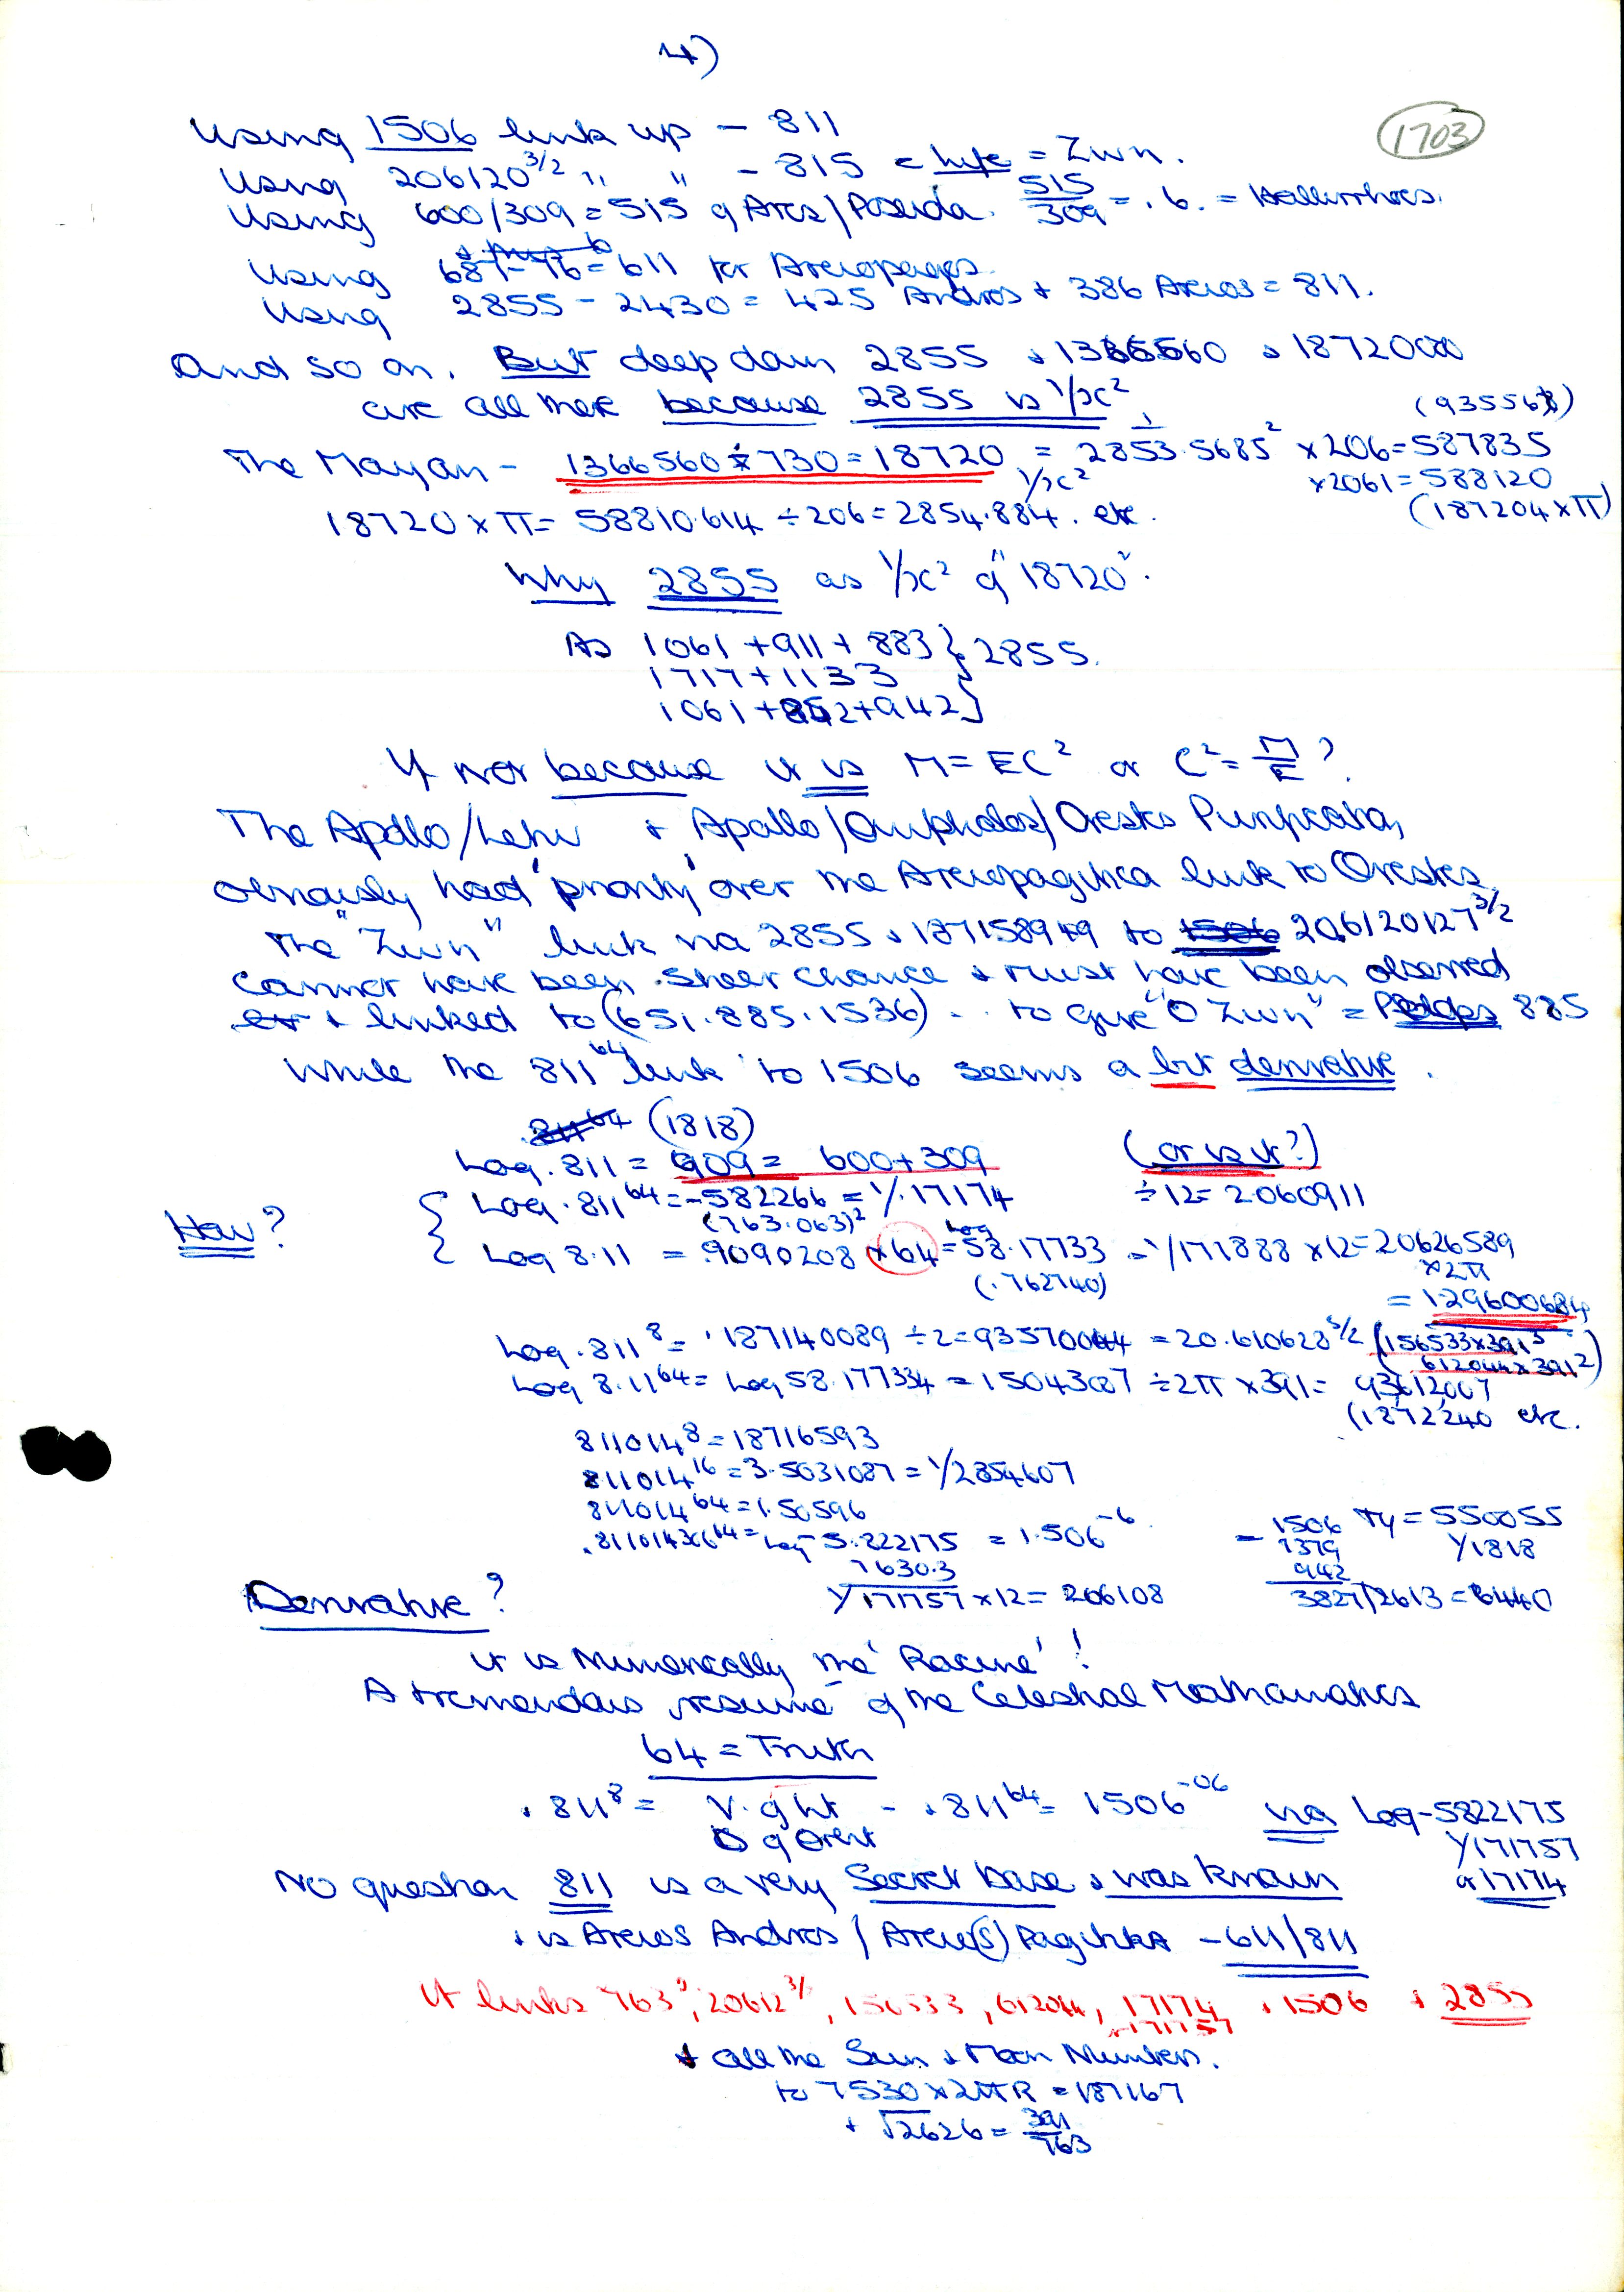 4)
1703
Using 1506 link up - 811
Using 206120^3/2 " " - 815 = life = Zwn.
Using 600/309 = 515 of Ares/Poseida. 515/309 = .6. = Hallirrhoes.
Using 687-76 = 611 for Areopages.
Using 2855 - 2430 = 425 Andros + 386 Areios = 811.
And so on. But deep down 2855 & 1366560 & 1872000
are all there because 2855 is 1/x²
(935567)
The Mayan - 1366560 ÷ 730 = 18720 = 1/2853.5685² × 206 = 587835
1/x² ×2061 = 588120
18720 × π = 58810.614 ÷ 206 = 2854.884. etc. (187204×π)
Why 2855 as 1/x² of "18720".
As 1061 + 911 + 883 } 2855.
1717 + 1133
1061 + 852 + 942 }
If not because it is M = EC² or C² = M/E ?
The Apollo/Lehu + Apollo/Omphalos/Orestes Purification,
obviously had 'priority' over the Areiopagitica link to Orestes.
The "Zwn" link via 2855 & 187158949 to 1506 20.6120127^3/2
cannot have been sheer chance & must have been observed
& linked to (651.885.1536) .. to give "O Zwn" = 885
While the 811^64 link to 1506 seems a bit derivative.
811^64 (1818)
Log .811 = 909 = 600 + 309 (or is it?)
How?
Log .811^64 = -582266 = 1/.17174 ÷12 = 2060911
(763.063)²
Log 8.11 = .9090208 × 64 = Log 58.17733 = 1/171888 × 12 = 20626589
(.762740) ×2π
= 129600684
Log .811^8 = .187140089 ÷ 2 = 93570044 = 20.610628^3/2 (156533×391³
612044×391²)
Log 8.11^64 = Log 58.177334 = 15043007 ÷ 2π × 391 = 93612007
(1872240 etc.
811014^8 = 18716593
811014^16 = 3.5031087 = 1/2854607
811014^64 = 1.50596
.811014 x^64 = Log - 5.822175 = 1.506^-6
7630.3
1/171757 × 12 = 206108
- 1506 Ty = 550055
1379 1/1818
942
3827/2613 = 6440
Derivative?
It is Numerically the 'Racine'!
A tremendous resume of the Celestial Mathematics
64 = Truth
.811^8 = V. of Lht - .811^64 = 1506^-06 via Log -5822175
of Orbit 1/171757
or 17174
No question 811 is a very Secret base & was known
& is Areios Andros / Areio(s) Pagitika - 611/811
It links 763", 20612^3/, 156533, 612044, 17174 & 1506 & 2855
171757
& all the Sun & Moon Numbers.
to 7530 × 2πR = 187167
+ √2626 = 391/763